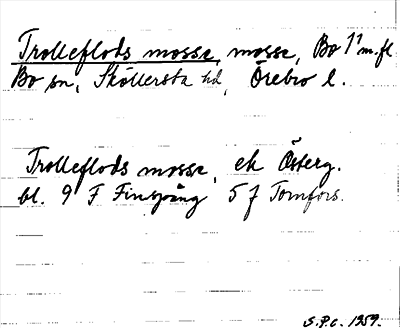 Trolleflods mosse, mosse, Bo 1¹ m.fl
Bo sn, Sköllersta hd, Örebro l.
Trolleflods mosse, ek Österg.
bl. 9 F Finspång 5 f Tomfors.
S.P.c. 1959.